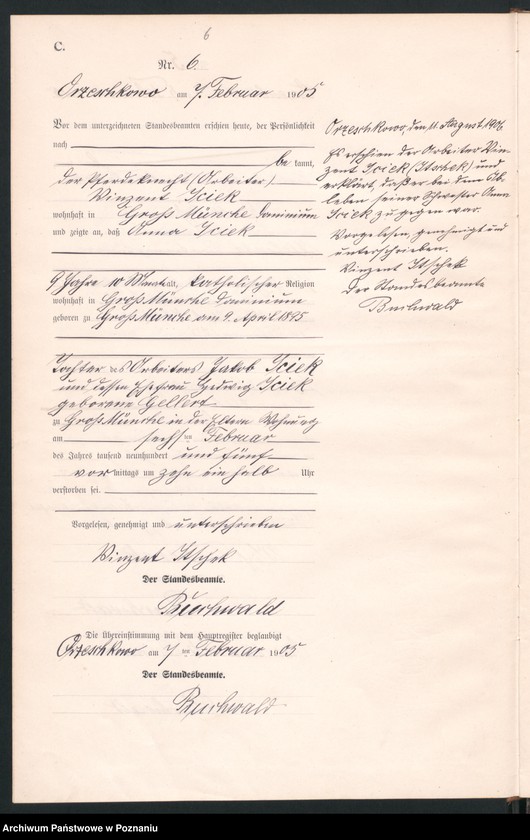 6
C.
Nr. 6.
Orzeschkowo am 7. Februar 1905
Vor dem unterzeichneten Standesbeamten erschien heute, der Persönlichkeit
nach
be kannt,
der Pferdeknecht (Arbeiter)
Vinzent Sciek
wohnhaft in Groß Münche Dominium
und zeigte an, daß Anna Sciek
9 Jahre 10 Monate alt, katholischer Religion
wohnhaft in Groß Münche Dominium
geboren zu Groß Münche am 9. April 1895
Tochter des Arbeiters Jakob Sciek
und dessen Ehefrau Hedwig Sciek
geborene Gellert
zu Groß Münche in der Eltern Wohnung
am sechsten Februar
des Jahres tausend neunhundert und fünf
vor mittags um zehn ein halb Uhr
verstorben sei.
Vorgelesen, genehmigt und unterschrieben
Vinzent Itschek
Der Standesbeamte.
Buchwald
Die Übereinstimmung mit dem Hauptregister beglaubigt
Orzeschkowo am 7 ten Februar 1905
Der Standesbeamte.
Buchwald
Orzeschkowo, den 11. August 1906.
Es erschien der Arbeiter Vin-
zent Sciek (Itschek) und
erklärt, daß er bei dem Ab-
leben seiner Schwester Anna
Sciek zu gegen war.
Vorgelesen, genehmigt und
unterschrieben.
Vinzent Itschek
Der Standesbeamte
Buchwald
Archiwum Państwowe w Poznaniu